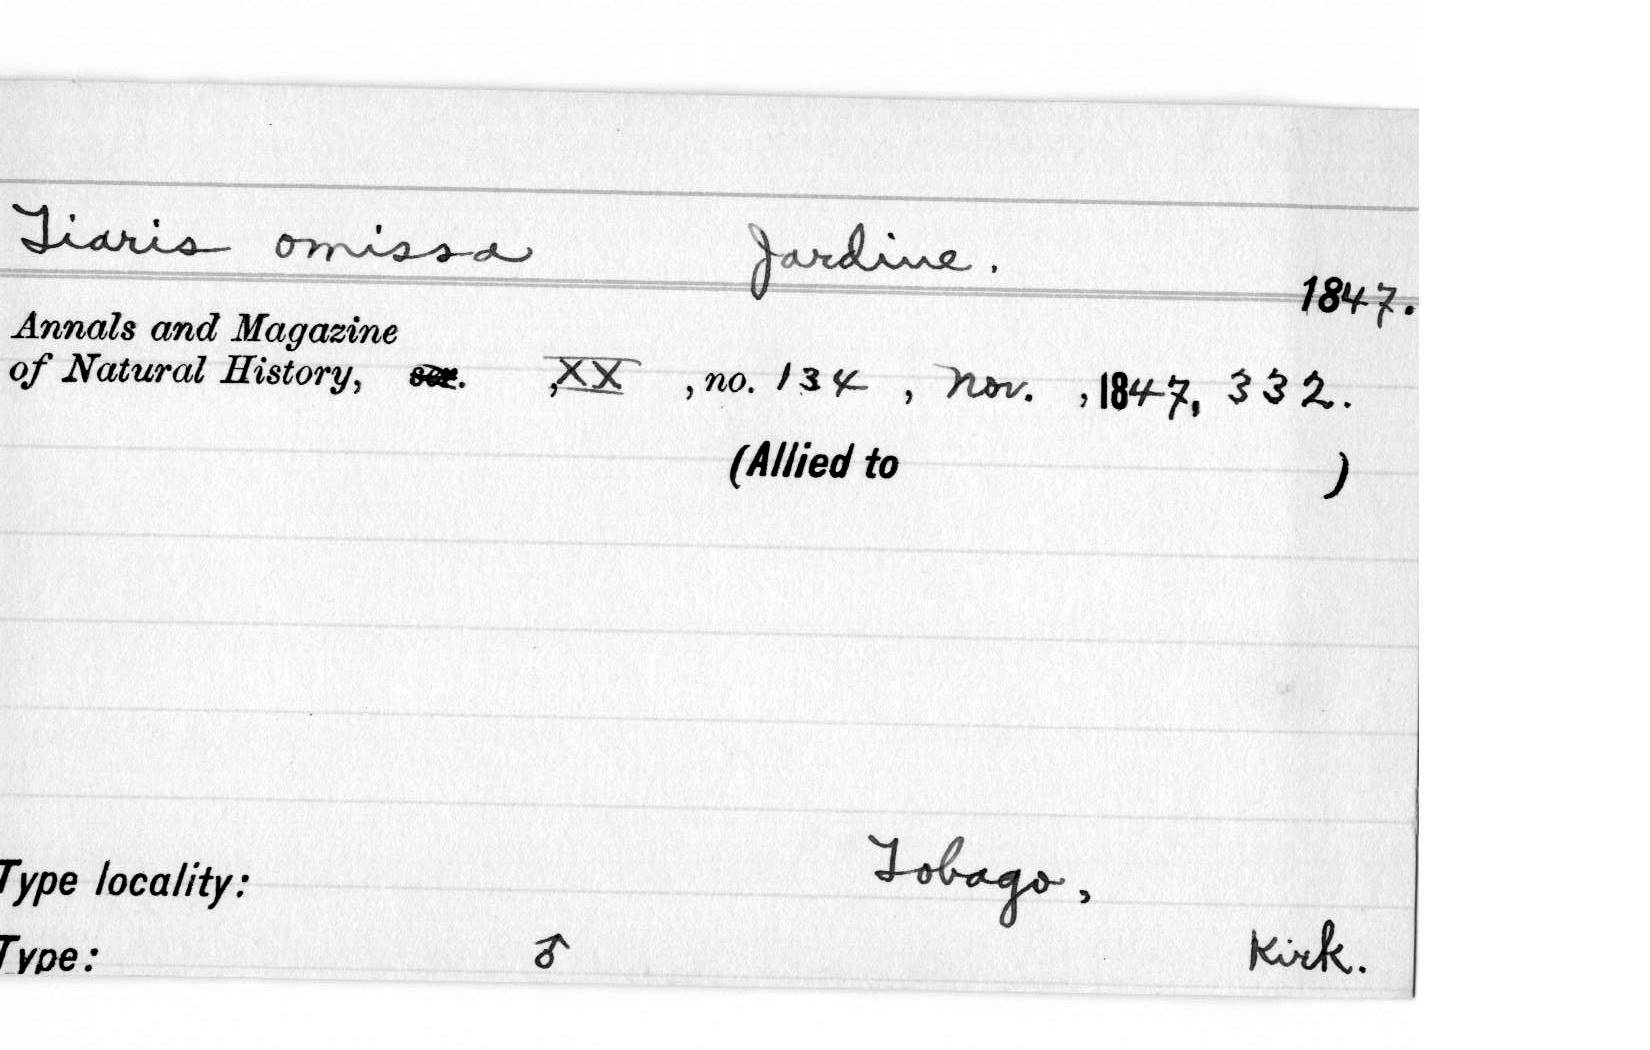 Tiaris omissa Jardine.
1847.
Annals and Magazine
of Natural History, ser. , XX , no. 134 , Nov. , 1847, 332.
(Allied to )
Type locality: Tobago,
Type: ♂ Kirk.